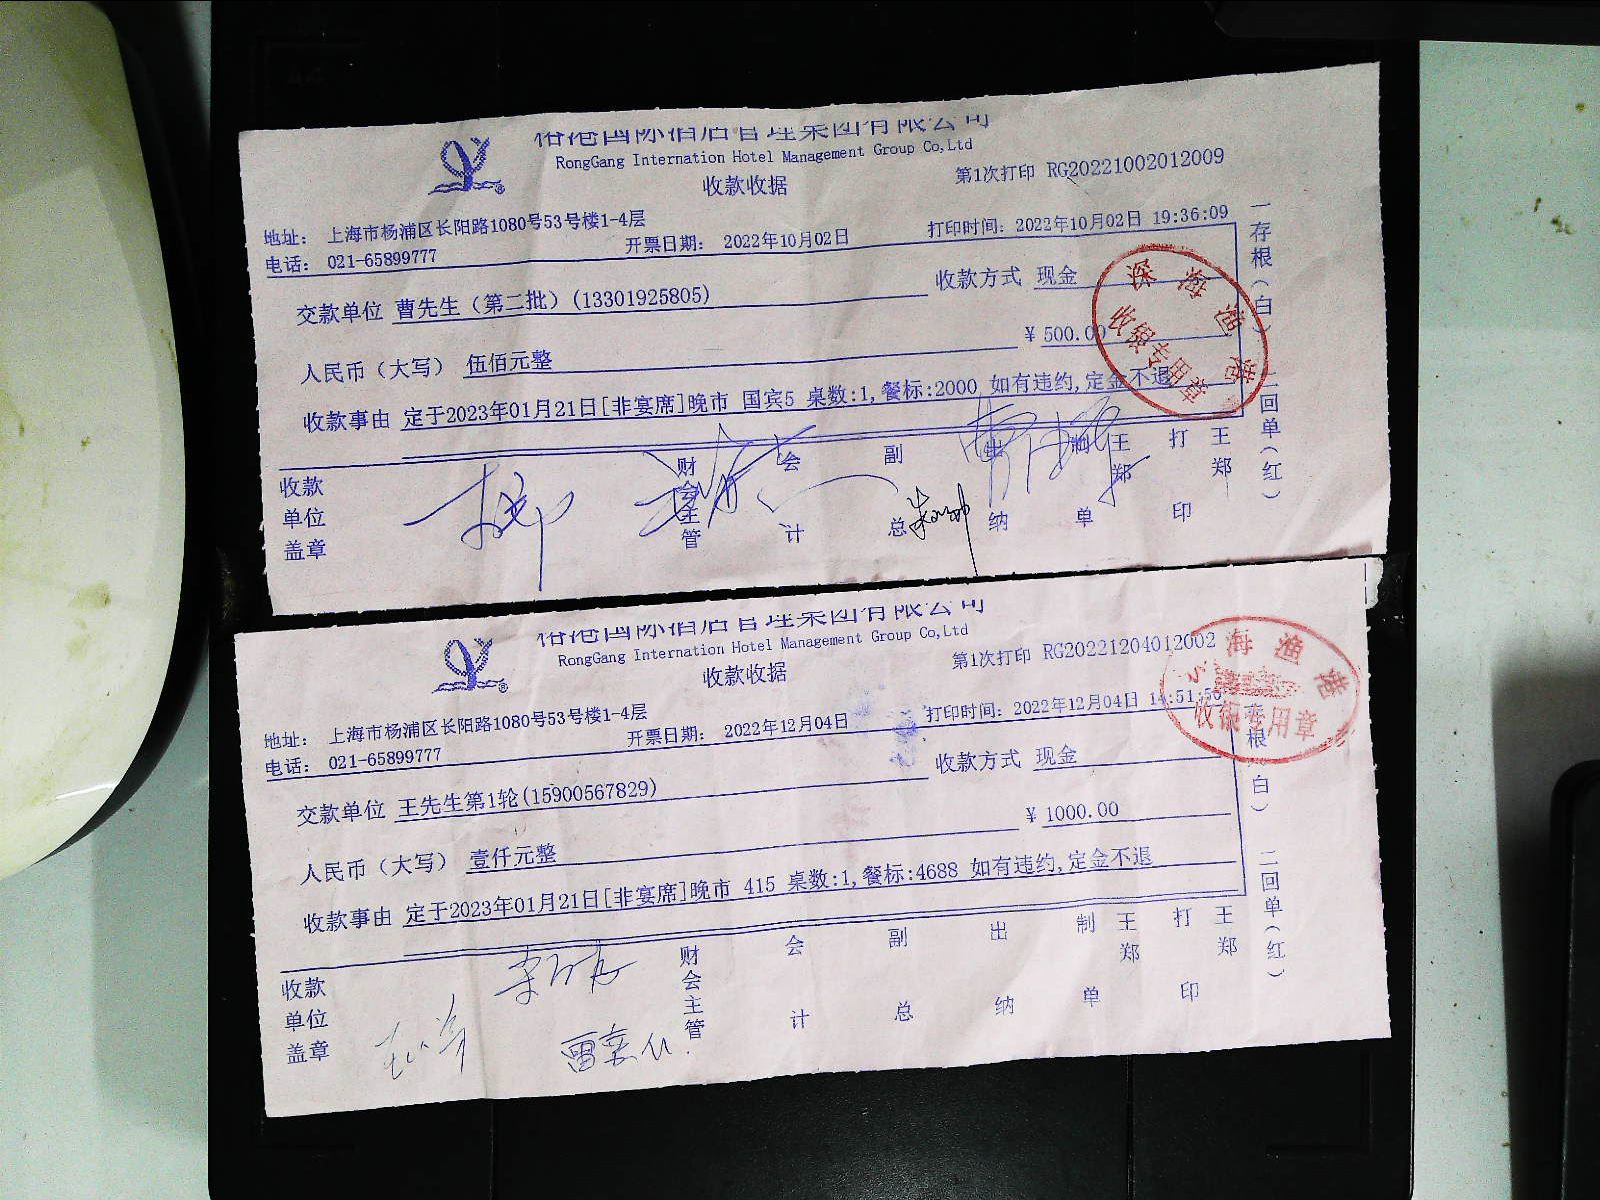 国际酒店管理集团有限公司
RongGang Internation Hotel Management Group Co,Ltd
收款收据
第1次打印 RG20221002012009
地址: 上海市杨浦区长阳路1080号53号楼1-4层
电话: 021-65899777
开票日期: 2022年10月02日
打印时间: 2022年10月02日 19:36:09
交款单位 曹先生(第二批)(13301925805)
收款方式 现金
人民币(大写) 伍佰元整
¥ 500.00
收款事由 定于2023年01月21日[非宴席]晚市 国宾5 桌数:1,餐标:2000 如有违约,定金不退
深海渔港
收银专用章
一存根(白) 二回单(红)
收款单位盖章
财会主管
会计
副总
出纳
制单
王郑
打印
王郑
国际酒店管理集团有限公司
RongGang Internation Hotel Management Group Co,Ltd
收款收据
第1次打印 RG20221204012002
地址: 上海市杨浦区长阳路1080号53号楼1-4层
电话: 021-65899777
开票日期: 2022年12月04日
打印时间: 2022年12月04日 14:51:50
交款单位 王先生第1轮(15900567829)
收款方式 现金
人民币(大写) 壹仟元整
¥ 1000.00
收款事由 定于2023年01月21日[非宴席]晚市 415 桌数:1,餐标:4688 如有违约,定金不退
海渔港
收银专用章
存根(白) 二回单(红)
收款单位盖章
财会主管
会计
副总
出纳
制单
王郑
打印
王郑